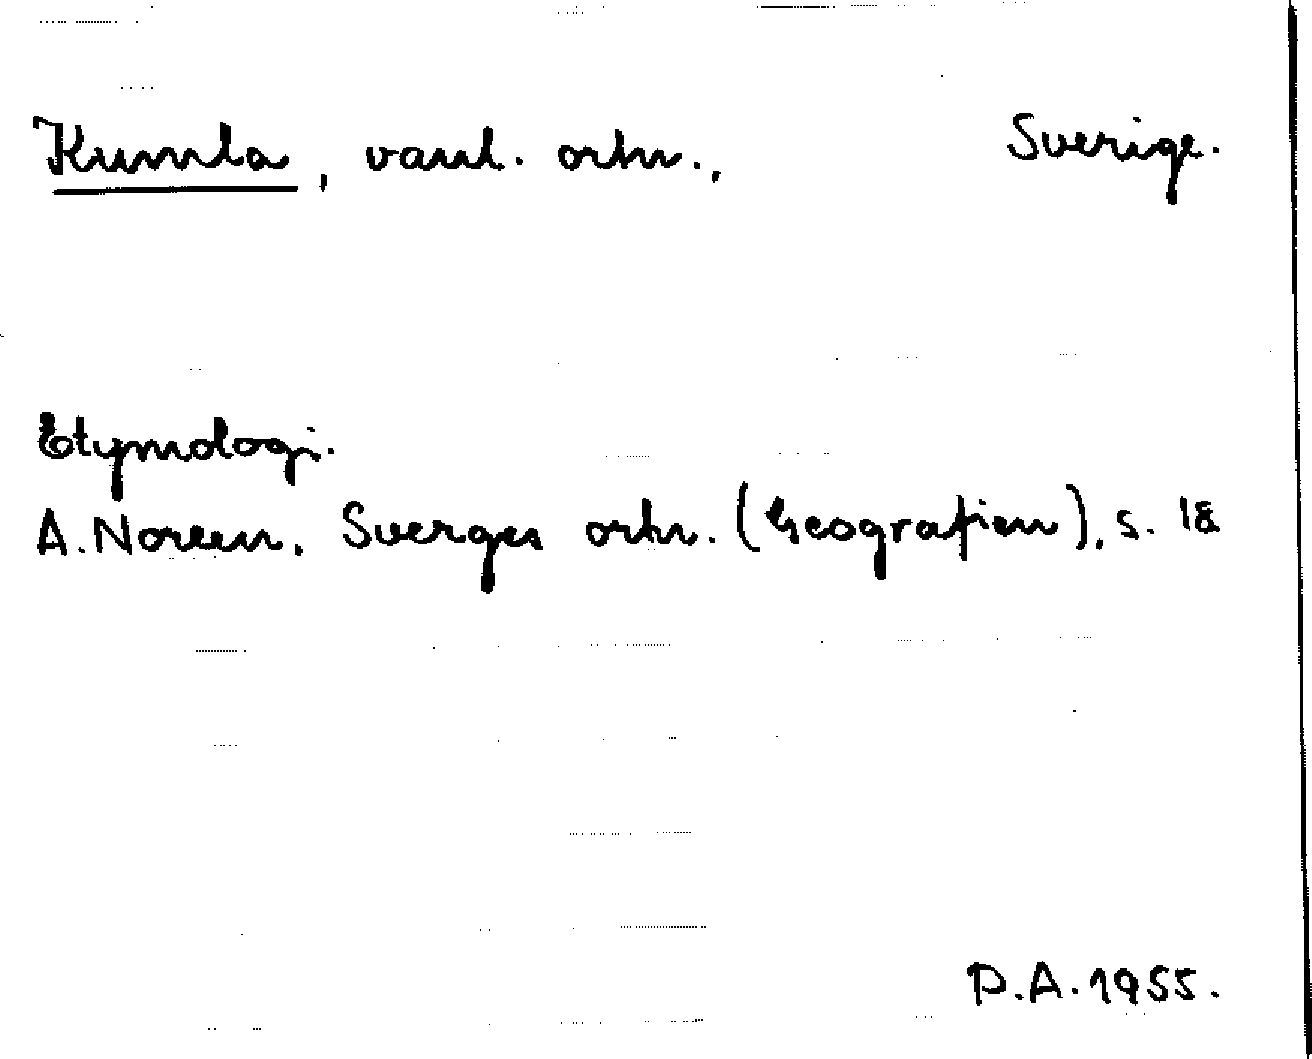 Kumla, vanl. ortn., Sverige.
Etymologi.
A. Noreen. Sverges ortn. (Geografien), s. 18
P.A. 1955.